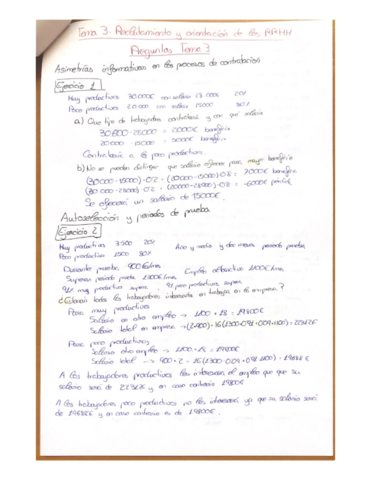 Tema 3. Reclutamiento y orientación de los RRHH
Preguntas Tema 3
Asimetrías informativas en los procesos de contratación
Ejercicio 1
Muy productivos 30.000€ con salario 28.000 20%
Poco productivos 20.000 con salario 15000 80%
a) Que tipo de trabajadores contrataría y con que salario
30.000-28000 = 2000€ beneficio
20000 - 15000 = 5000€ beneficio
Contrataría a los poco productivos.
b) No se pueden distinguir que salario ofrecerá para mayor beneficio
(30000-15000)·0'2 + (20000-15000)·0'8 = 7000€ beneficio
(30000-28000)·0'2 + (20000-28000)·0'8 = -6000€
Se ofrecerá un salario de 15000€.
Autoselección y periodos de prueba
Ejercicio 2
Muy productivos 20%
Poco productivos 1300 80%
Año y medio y dos meses periodo prueba
Durante prueba, 900€/mes Empleo alternativo 1100€/mes
Superan periodo prueba
muy productivos supera. 9% poco productivos supera
¿ todos los trabajadores interesante en trabajar en la empresa?
Para muy productivos
Salario otro empleo → 1100·18 = 19800€
Salario total en empresa →
Para poco productivos
Salario otro empleo → 1100·18 = 19800€
Salario total → 900·2 +
A los trabajadores productivos les interesará el empleo que su
salario será de y en caso contrario 19800€
A los trabajadores poco productivos no les interesará ya que su salario será
de y en caso contrario es de 19800€.